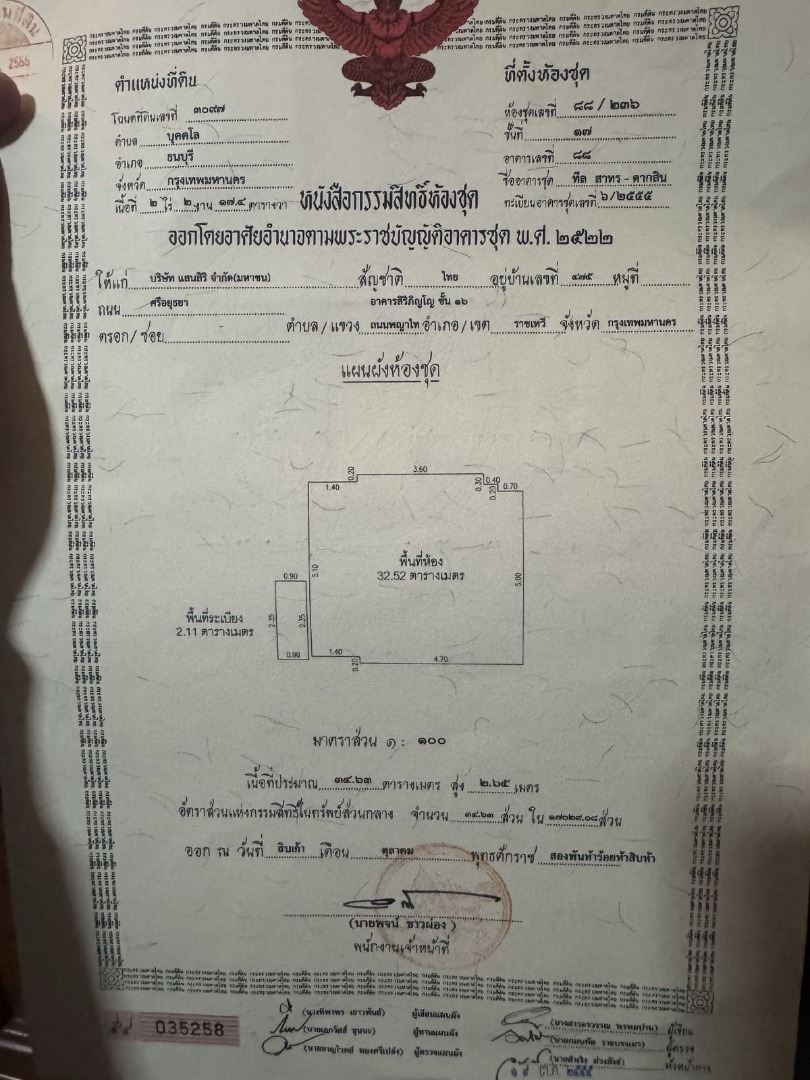 2555
ตำแหน่งที่ดิน
โฉนดที่ดินเลขที่ ๓๐๙๗
ตำบล บุคคโล
อำเภอ ธนบุรี
จังหวัด กรุงเทพมหานคร
เนื้อที่ ๒ ไร่ ๒ งาน ๑๗.๔ ตารางวา
ที่ตั้งห้องชุด
ห้องชุดเลขที่ ๘๘/๒๓๖
ชั้นที่ ๑๗
อาคารเลขที่ ๘๘
ชื่ออาคารชุด ทีล สาทร - ตากสิน
ทะเบียนอาคารชุดเลขที่ ๖/๒๕๕๕
หนังสือกรรมสิทธิ์ห้องชุด
ออกโดยอาศัยอำนาจตามพระราชบัญญัติอาคารชุด พ.ศ. ๒๕๒๒
ให้แก่ บริษัท แสนสิริ จำกัด(มหาชน) สัญชาติ ไทย อยู่บ้านเลขที่ ๔๗๕ หมู่ที่
ถนน ศรีอยุธยา อาคารสิริภิญโญ ชั้น ๑๖
ตรอก/ซอย ตำบล/แขวง ถนนพญาไท อำเภอ/เขต ราชเทวี จังหวัด กรุงเทพมหานคร
แผนผังห้องชุด
0.20 3.60
1.40 0.30 0.40
0.20 0.70
พื้นที่ห้อง
32.52 ตารางเมตร
5.10 5.00
0.90
พื้นที่ระเบียง
2.11 ตารางเมตร
2.35 2.35
0.90 1.40 0.20 4.70
มาตราส่วน ๑ : ๑๐๐
เนื้อที่ประมาณ ๓๔.๖๓ ตารางเมตร สูง ๒.๖๕ เมตร
อัตราส่วนแห่งกรรมสิทธิ์ในทรัพย์ส่วนกลาง จำนวน ๓๔.๖๓ ส่วน ใน ๑๗๐๒๙.๐๘ ส่วน
ออก ณ วันที่ สิบเก้า เดือน ตุลาคม พุทธศักราช สองพันห้าร้อยห้าสิบห้า
(นายพจน์ ขาวผ่อง)
พนักงานเจ้าหน้าที่
035258
ผู้เขียนแผนผัง
ผู้ทานแผนผัง
ผู้ตรวจแผนผัง
ผู้เขียน
ผู้ตรวจ
หัวหน้าการ
ต.ค. ๒๕๕๕